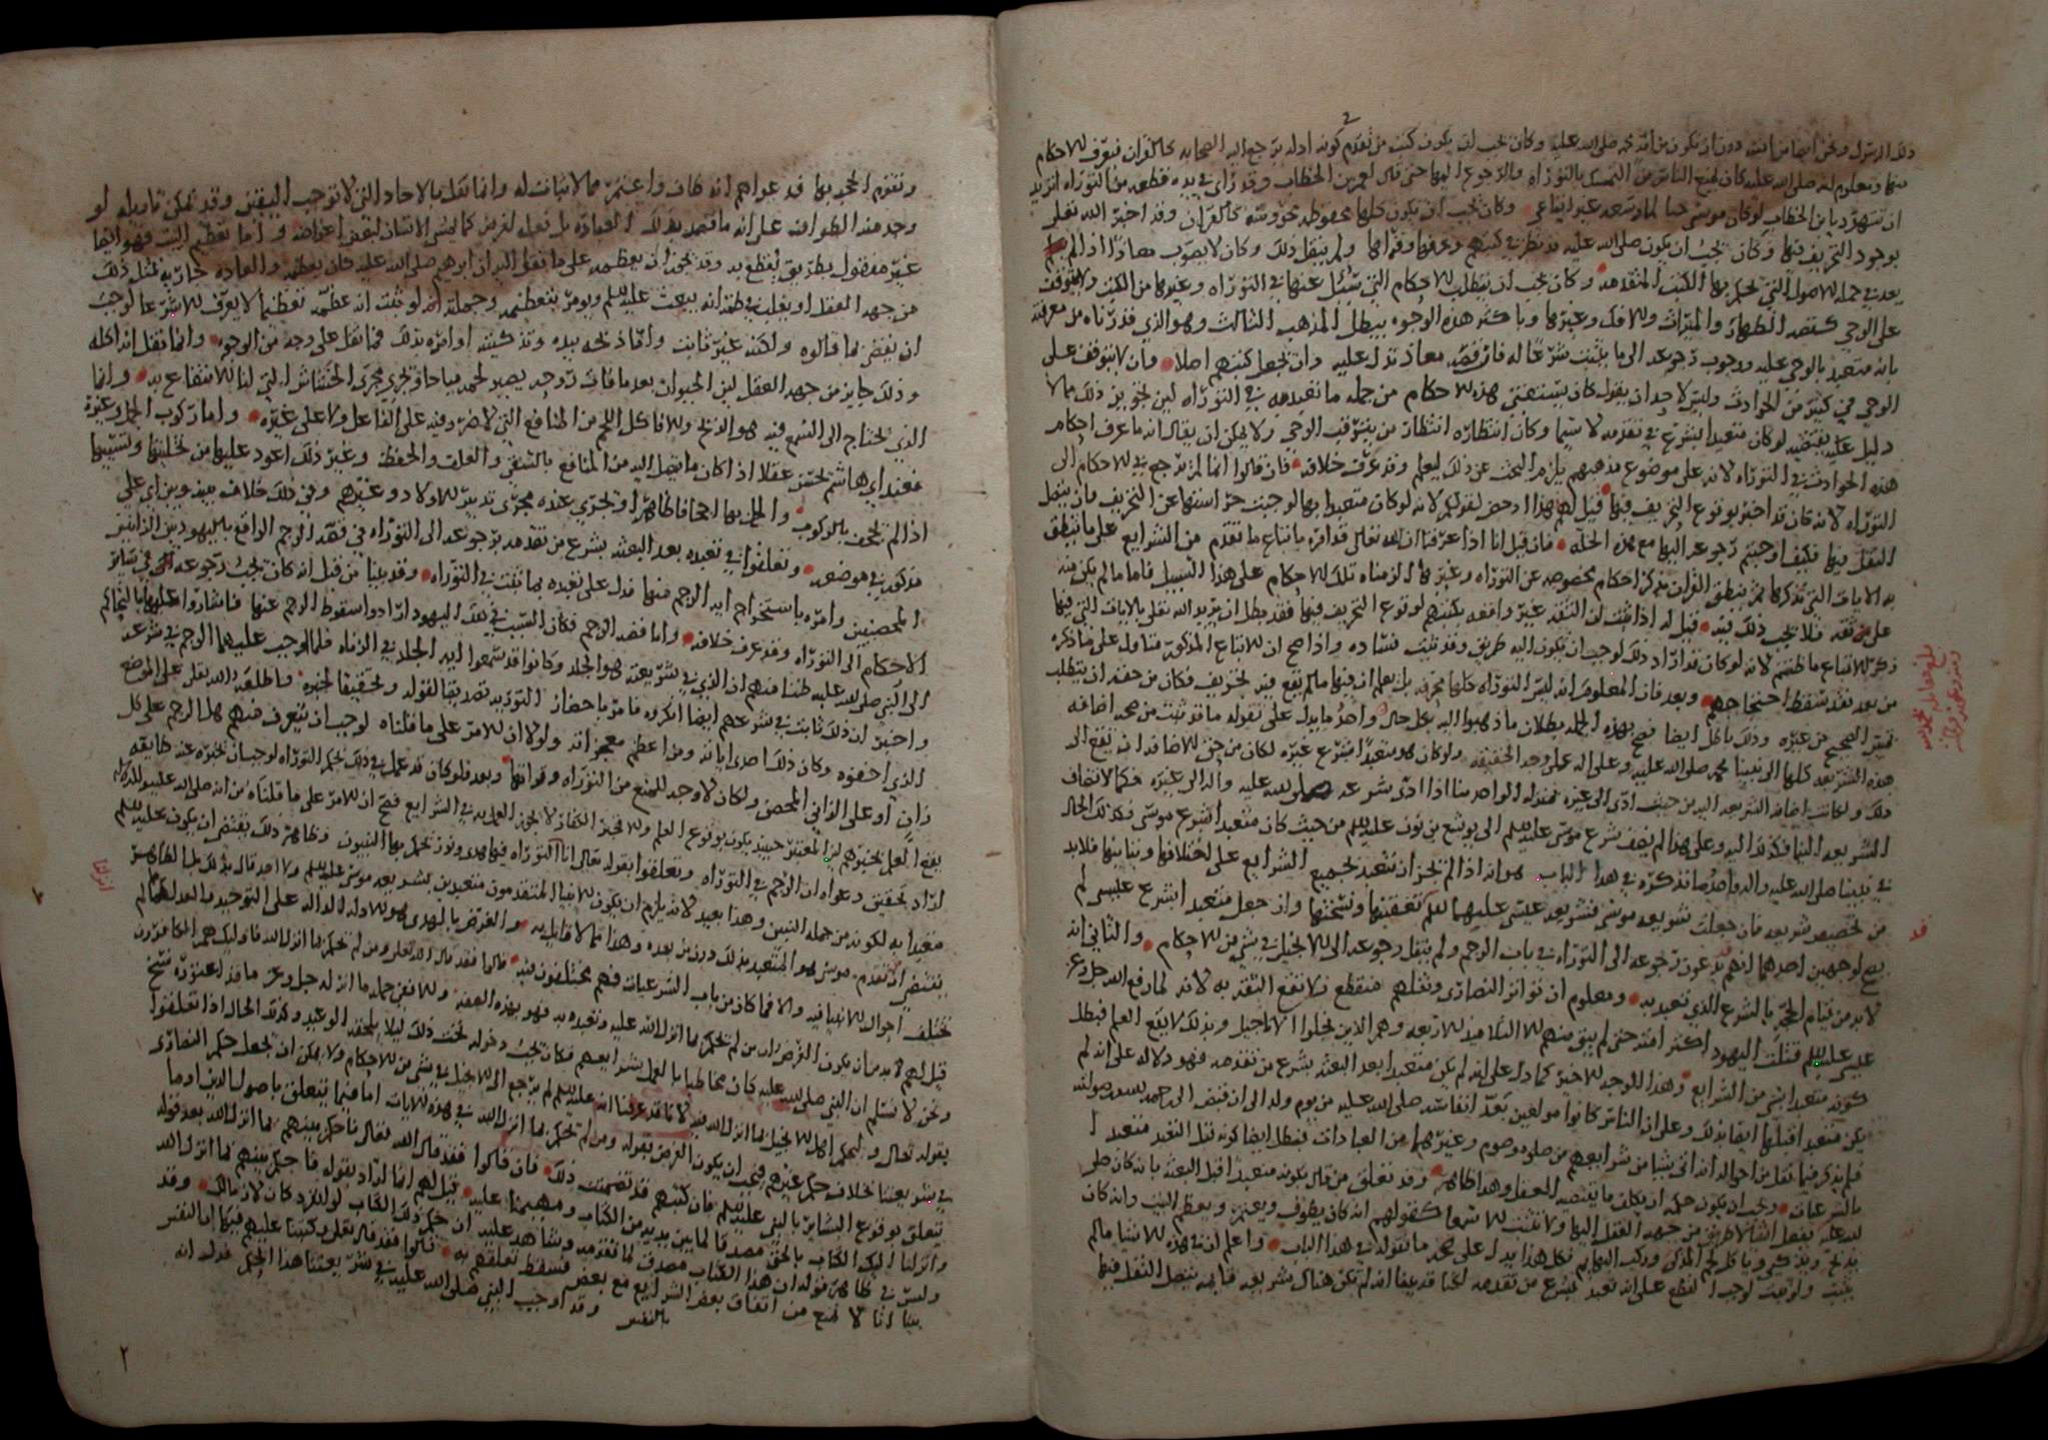 ذلك الرسول ونحن ايضا من امته دون ان يكون من امة محمد صلى الله عليه وكان يجب ان يكون كتب من تقدم كونه ادلة يرجع اليه الصحابة كالقران فتعرف الاحكام
منها ومعلوم انه صلى الله عليه كان يمنع الناس من التمسك بالتوراة والرجوع اليها حتى قال لعمر بن الخطاب وقد راى في يده قطعه من التوراة اتريد
ان تتهود يا بن الخطاب لو كان موسى حيا لما وسعه غير اتباعي وكان يجب ان يكون كلها محفوظه محروسه كالقران وقد اخبر الله تعالى
بوجود التحريف فيها وكان يجب ان يكون صلى الله عليه قد نظر في كتبهم وعرفها وقراها ولم ينقل ذلك وكان لا يصوب معاذا اذا لم
يعد في جملة الاصول التي يحكم بها الكتب المتقدمه وكان يجب ان يتطلب الاحكام التي سئل عنها في التوراه وغيرها من الكتب ولا يتوقف
على الوحي كقصه الظهار والميراث والافك وغيرها وباكثر هذه الوجوه يبطل المذهب الثالث وهو الذي قدرناه من معرفته
بانه متعبد بالوحي عليه ووجوب رجوعه الى ما يثبت شرعا له فان قصه معاذ تدل عليه وان يجعل كتبهم اصلا وان لا يتوقف على
الوحي في كثير من الحوادث وليس لاحد ان يقول كان يستقضي هذه الاحكام من جملة ما تعبد به في التوراه لان تجويز ذلك مما لا
دليل عليه يقتضيه لو كان متعبدا بشرع من تقدمه لا سيما وكان انتظاره انتظار من يتوقف الوحي ولا يمكن ان يقال انه ما عرف احكام
هذه الحوادث في التوراه لانه على موضوع مذهبهم يلزمه البحث عن ذلك ليعلم وقد عرف خلافه فان قالوا انما لم يرجع في الاحكام الى
التوراه لانه كان قد اخبر بوقوع التحريف فيها قيل لهم هذا ادحض لقولكم لانه لو كان متعبدا بها لوجبت حراستها عن التحريف وان يتصل
النقل فيها فكيف اوجبتم رجوعه اليها مع هذه الحاله فان قيل انا اذا عرفنا ان الله تعالى قد امره باتباع ما تقدم من الشرايع على ما ينطق
به الايات التي نذكرها ثم نطق القران بذكر احكام مخصوصه عن التوراه وغيرها الزمناه تلك الاحكام على هذا السبيل فاما ما لم يكن منه
على ثقه فلا يجب ذلك فيه قيل له اذا ثبت ان الثقه غير واقعه بكتبهم لوقوع التحريف فيها فقد بطل ان يريد الله تعالى بالايات التي فيها
ذكر الاتباع ما ظننتم لانه لو كان قد اراد ذلك لوجب ان يكون اليه طريق وقد ثبت فساده واذا صح ان الاتباع المذكور متاول على ما ذكره
من بعد فقد سقط احتجاجهم وبعد فان المعلوم انه ليس التوراه كلها محرفه بل يعلم ان فيها ما لم يقع فيه تحريف فكان من حقه ان يتطلب
تمييز الصحيح من غيره وذلك باطل ايضا فصح بهذه الجمله بطلان ما ذهبوا اليه بكل حال واحد ما يدل على ما نقوله ما قد ثبت من صحه اضافه
هذه الشريعه كلها الى نبينا محمد صلى الله عليه وعلى اله على وجه الحقيقه ولو كان هو متعبدا بشرع غيره لكان من حق الاضافه ان تقع الى
ذلك ولكانت اضافه الشريعه اليه من حيث ادى الى غيره بمنزله الواحد منا اذا ادى شرعه صلى الله عليه واله الى غيره فكما لا تضاف
الشريعه الينا فكذلك اليه وعلى هذا لم يضف شرع موسى عليه السلم الى يوشع بن نون عليه السلم من حيث كان متعبدا بشرع موسى فكذلك الحال
في نبينا صلى الله عليه واله واحد ما نذكره في هذا الباب هو انه اذا لم يجز ان يتعبد بجميع الشرايع على اختلافها وتباينها فلا بد
من تخصيص شريعه فان جعلت شريعه موسى فشريعه عيسى عليهما السلم تعقبتها ونسختها وان جعل متعبدا بشرع عيسى لم
يصح لوجهين احدهما انهم يدعون رجوعه الى التوراه في باب الرجم ولم ينقل رجوعه الى الانجيل في شي من الاحكام والثاني انه
لا بد من قيام الحجه بالشرع الذي تعبد به ومعلوم ان تواتر النصارى ونقلهم منقطع فلا تقع الثقه به لانه لما رفع الله جل وعز
عيسى عليه السلم قتلت اليهود اكثر امته حتى لم يبق منهم الا التلاميذ الاربعه وهم الذين نحلوا الاناجيل وبذلك لا يقع العلم فبطل
كونه متعبدا بشي من الشرايع وهذا الوجه الاخير كما دل على انه لم يكن متعبدا بعد البعثه بشرع من تقدمه فهو دلاله على انه لم
يكن متعبدا قبلها ايضا بذلك وعلى ان الناس كانوا مولعين بعد انفاسه صلى الله عليه من يوم ولد الى ان قبض الى رحمه الله ورضوانه
فلم يذكر فيما نقل من احواله انه اتى بشيا من شرايعهم من صلوه وصوم وغيرهما من العبادات فبطل ايضا كونه قبل التعبد متعبدا
بالشرعيات وقد تعلق من قال بكونه متعبدا قبل البعثه بانه كان صلى
الله عليه يفعل اشيا لا طريق من جهه العقل اليها ولا تثبت الا شرعا كقولهم انه كان يطوف ويعتمر ويعظم البيت وانه كان
يذبح ويذكي وياكل لحم المذكى ويركب البهايم فكل هذا يدل على صحه ما نقوله في هذا الباب واعلم ان هذه الاشيا ما لم
يثبت ولو ثبت لوجب القطع على انه تعبد بشرع من تقدمه لكنا قد بينا انه لم يكن هناك شريعه قايمه يتصل النقل فيها
وتقوم الحجه بها فدعواهم انه طاف واعتمر مما لا اثبات له وانما نقل بالاحاد التي لا توجب اليقين وقد يمكن تاويله لو
وجد منه الطواف على انه ما قصد بذلك العباده بل فعله لغرض كما يمشي الانسان لبعض اغراضه واما تعظيم البيت فهو ايضا
غير منقول بطريق يقطع به وقد يجوز ان يعظمه على ما نقل اليه ان ابرهيم صلى الله عليه كان يعظمه والعاده جاريه بمثل ذلك
من جهه العقل او يغلب في ظنه انه يبعث عليه السلم ويومر بتعظيمه وجملة انه لو ثبت انه عظمه تعظيما لا يعرف الا شرعا لوجب
ان يقضى بما قالوه ولكنه غير ثابت واما ذبحه بيده وتذكيته او امره بذلك فما نقل على وجه من الوجوه وانما نقل انه اكله
وذلك جايز من جهه العقل لان الحيوان بعد ما فات روحه يصير لحمه مباحا ويجري مجرى الحشايش التي لنا الانتفاع به وانما
الذي يحتاج الى السمع فيه هو الذبح والا فاكل اللحم من المنافع التي لا ضرر فيه على الفاعل ولا على غيره واما ركوب الجمل وغيره
فعند ابي هاشم يحسن عقلا اذا كان ما يصل اليه من المنافع بالسقي والعلف والحفظ وغير ذلك اعود عليها من تخليتها وتسييبها
اذا لم يجحف بالركوب والحمل بها اجحافا ظاهرا ويجري عنده مجرى تدبير الاولاد وغيرهم وفي ذلك خلاف بينه وبين ابي علي
مذكور في موضعه وتعلقوا في تعبده بعد البعثه بشرع من تقدمه برجوعه الى التوراه في قصه الرجم الواقع باليهوديين الزانيين
المحصنين وامره باستخراج ايه الرجم منها فدل على تعبده بما ثبت في التوراه وقد بينا من قبل انه كان يجب رجوعه في ساير
الاحكام الى التوراه وقد عرف خلافه واما قصه الرجم فكان السبب في ذلك اليهود ارادوا اسقاط الرجم عنها فاشاروا عليها بالتحاكم
الى النبي صلى الله عليه ظنا منهم ان الذي في شريعته هو الجلد وكانوا قد سمعوا ايه الجلد في الزناه فلما اوجب عليهما الرجم في شرعه
واخبر ان ذلك ثابت في شرعهم ايضا انكروه فامر باحضار التوريه تصديقا لقوله وتحقيقا لخبره فاطلعه الله تعالى على الموضع
الذي اخفوه وكان ذلك احدى اياته ومن اعظم معجزاته ولولا ان الامر على ما قلناه لوجب ان يتعرف منهم هل الرجم على كل
زان او على الزاني المحصن ولكان لا وجه للمنع من التوراه وقراتها وبعد فلو كان قد عمل في ذلك بحكم التوراه لوجب ان يخبره عنه طايفه
يقع العلم بخبرهم
اراد تحقيق دعواه ان الرجم في التوراه وتعلقوا بقوله تعالى انا انزلنا التوراه فيها هدى ونور يحكم بها النبيون وظاهر ذلك يقتضي ان يكون عليه السلم
متعبدا به لكونه من جملة النبيين وهذا بعيد لانه يلزم ان يكون الانبيا المتقدمون متعبدين بشريعه موسى عليه السلم ولا احد قال بذلك بل الظاهر
يقتضي ان تقدم موسى هو المتعبد بذلك دون من بعده وهذا مما لا قايل به والغرض بالهدى هو الادله الداله على التوحيد والعدل مما لم
تختلف احوال الانبيا فيه والا فما كان من باب الشرعيات فهم مختلفون فيه قالوا فقد قال الله تعالى ومن لم يحكم بما انزل الله فاوليك هم الكافرون
قيل لهم لا بد من ان يكون الغرض ان من لم يحكم بما انزل الله عليه وتعبده به فهو بهذه الصفه
ونحن لا نسلم ان النبي صلى الله عليه كان مخاطبا بالعمل بشرايعهم فكان يجب دخوله تحت ذلك ليلا يلحقه الوعيد وكذلك الحال اذا تعلقوا
بقوله تعالى وليحكم اهل الانجيل بما انزل الله فيه لانا قد عرفنا انه عليه السلم لم يرجع الى الانجيل في شي من الاحكام ولا يمكن ان يجعل حكم النصارى
في شريعتنا بخلاف حكم غيرهم فيجب ان يكون الغرض بقوله ومن لم يحكم بما انزل الله في هذه الايات اما فيما يتعلق باصول الدين او ما
تعلق بوقوع البشاير بالنبي عليه السلم فان كتبهم قد تضمنت ذلك فان قالوا فقد قال الله تعالى فاحكم بينهم بما انزل الله بعد قوله
وانزلنا اليك الكتاب بالحق مصدقا لما بين يديه من الكتاب ومهيمنا عليه قيل لهم انما اراد بقوله فاحكم بينهم بما انزل الله
وليس في ظاهر قوله ان هذا الكتاب مصدق لما تقدمه وشاهد عليه ان حكم ذلك الكتاب لو انفرد كان لازما لك وقد
بينا انا لا نمنع من اتفاق بعض الشرايع مع بعض فسقط تعلقهم به قالوا فقد قال تعالى وكتبنا عليهم فيها ان النفس
بالنفس وقد اوجب النبي صلى الله عليه في شريعتنا هذا الحكم فدل انه
٢